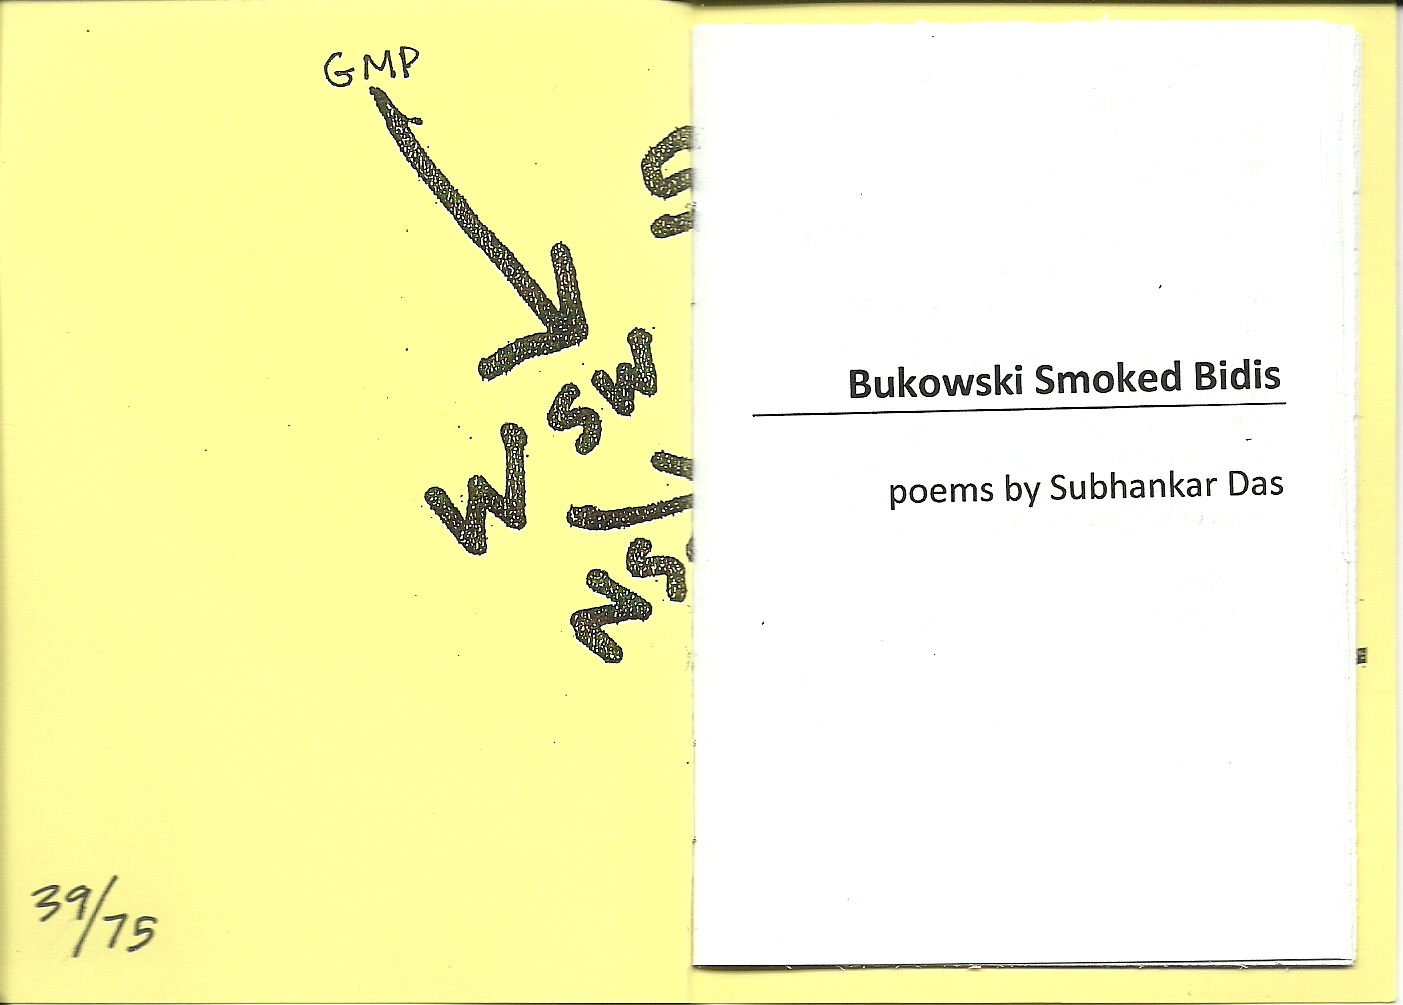 GMP
SW
W
NS
39/75
Bukowski Smoked Bidis
poems by Subhankar Das